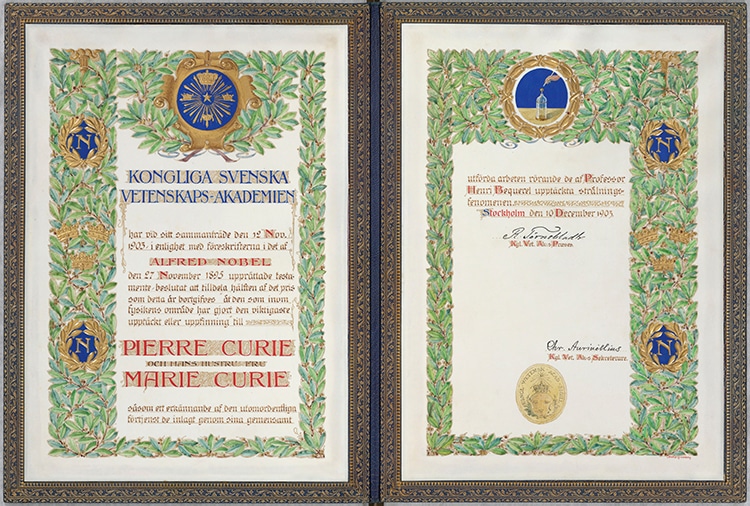 KONGLIGA SVENSKA
VETENSKAPS-AKADEMIEN
har vid sitt sammanträde den 12 Nov.
1903, i enlighet med föreskrifterna i det af
ALFRED NOBEL
den 27 November 1895 upprättade testa-
mente, beslutat att tilldela hälften af det pris
som detta år bortgifves åt den som inom
fysikens område har gjort den viktigaste
upptäckt eller uppfinning till
PIERRE CURIE
OCH HANS HUSTRU FRU
MARIE CURIE
såsom ett erkännande af den utomordentliga
förtjenst de inlagt genom sina gemensamt
N
N
utförda arbeten rörande de af Professor
Henri Bequerel upptäckta strålnings-
fenomenen.
Stockholm den 10 December 1903.
R. Törnebladh
Kgl. Vet. Ak:s Præses
Chr. Aurivillius
Kgl. Vet. Ak:s Sekreterare.
N
N